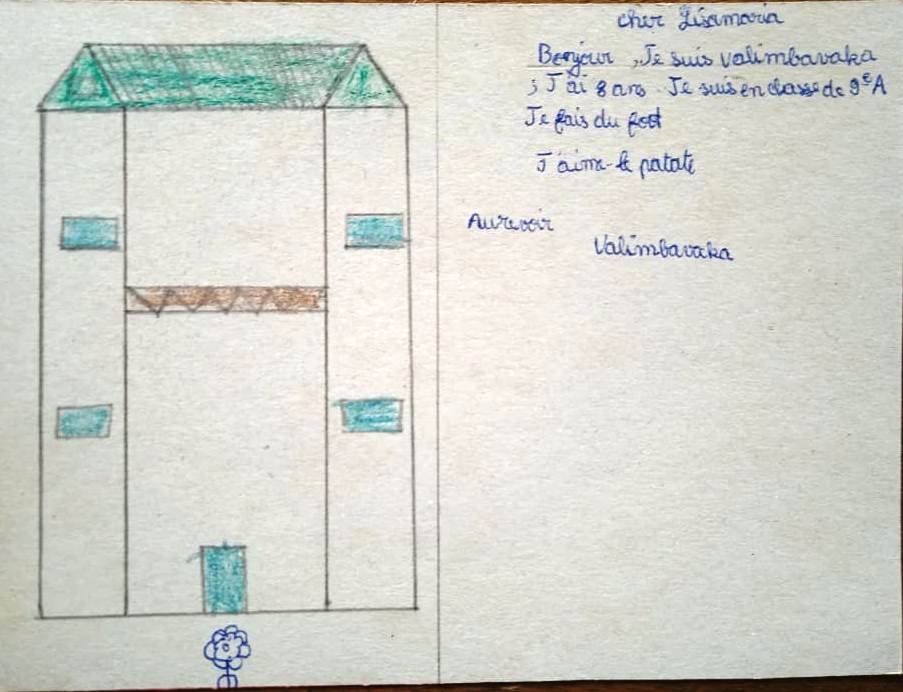 cher Lisamaria
Bonjour , Je suis valimbavaka
; J'ai 8 ans . Je suis en classe de 9e A
Je fais du foot
J'aime le patate
Au revoir
Valimbavaka